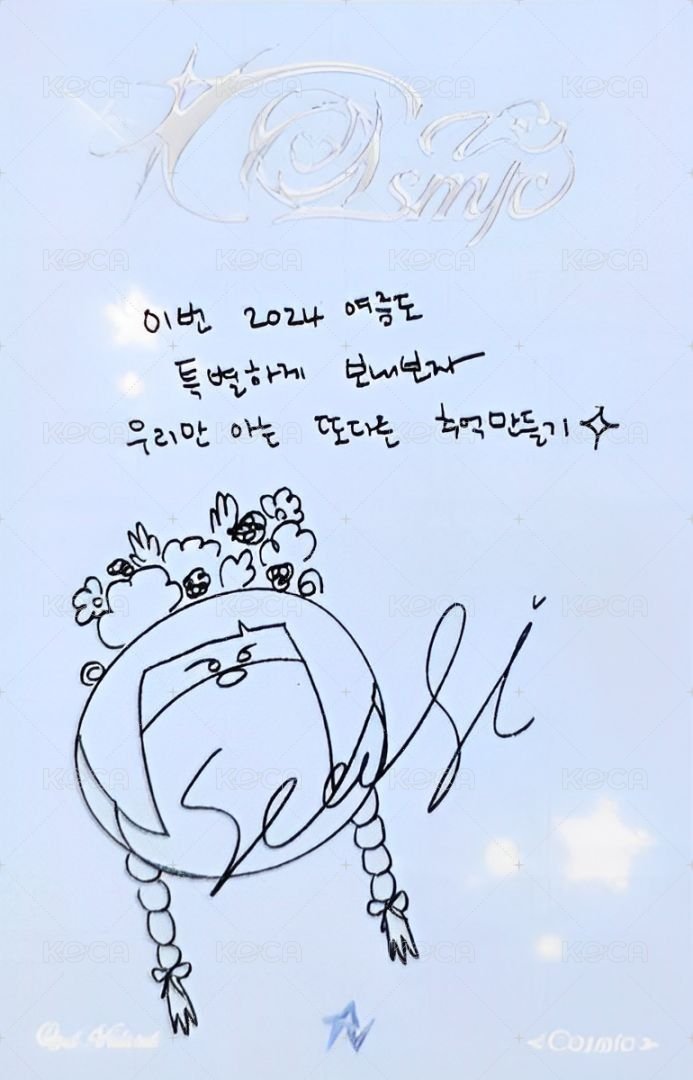 Cosmic
이번 2024 여름도
특별하게 보내보자
우리만 아는 또다른 추억만들기
Seulgi
Red Velvet
<Cosmic>
KOCA